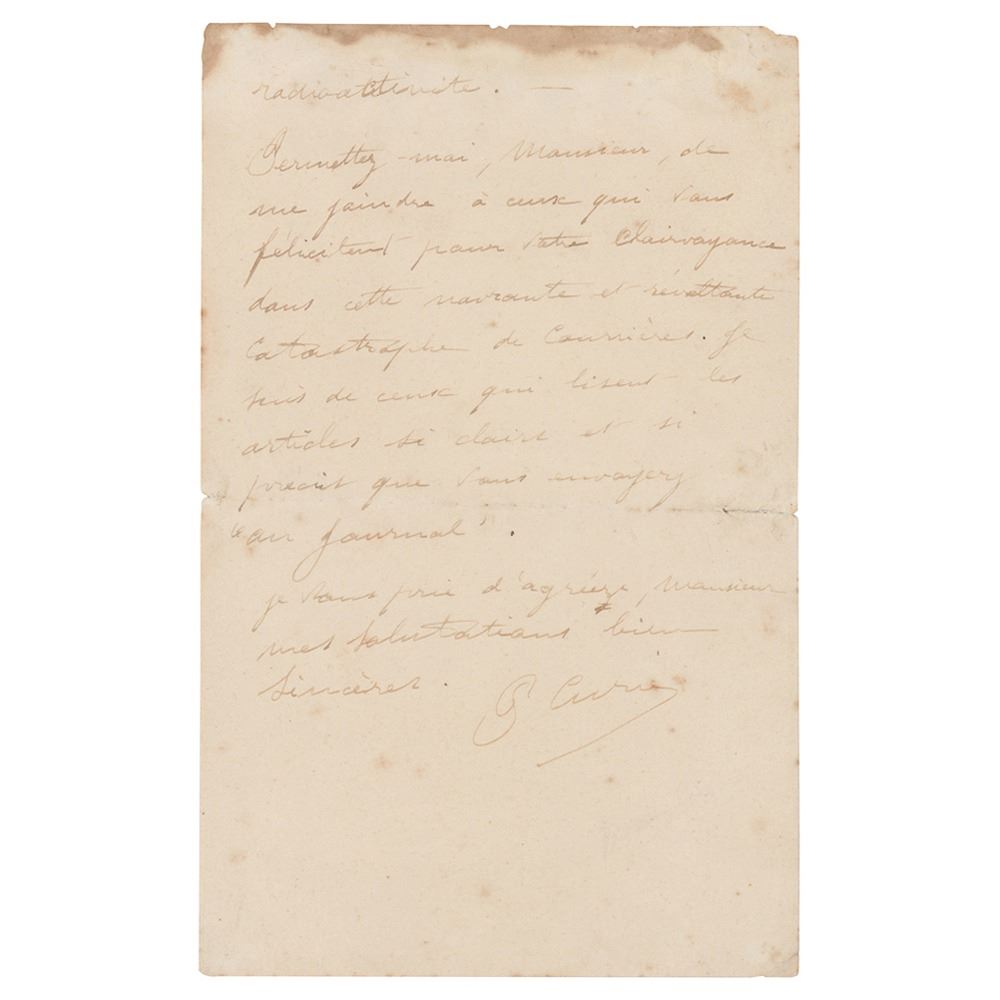 radioactivité. —
Permettez-moi, Monsieur, de
me joindre à ceux qui vous
félicitent pour votre clairvoyance
dans cette navrante et révoltante
catastrophe de Courrières. Je
suis de ceux qui lisent les
articles si clairs et si
précis que vous envoyez
"au Journal".
je vous prie d'agréer, Monsieur
mes salutations bien
sincères. P Curie